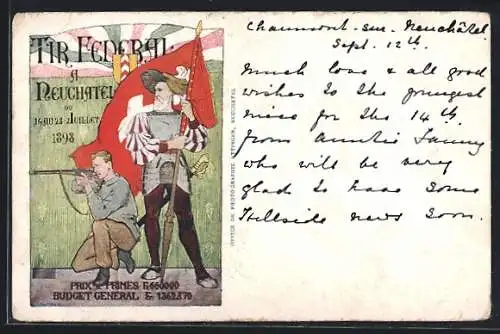 TIR FEDERAL
A
NEUCHATEL
DU
16 AU 28 JUILLET
1898
PRIX & PRIMES Fs 650000
BUDGET GENERAL Fs 1362870
Chaumont-sur-Neuchâtel
Sept. 12th.
Much love & all good
wishes to the youngest
niece for the 14th
from Auntie Fanny
who will be very
glad to have some
Hillside news soon.